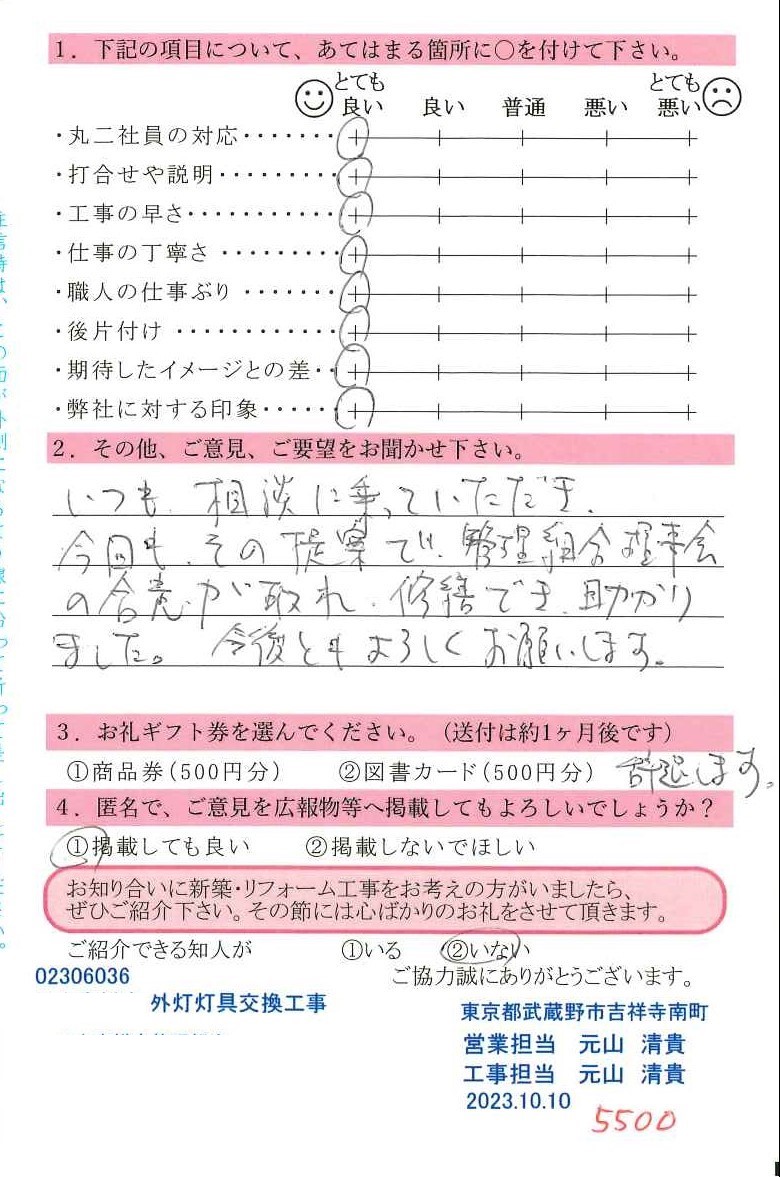 1．下記の項目について、あてはまる箇所に○を付けて下さい。
とても良い 良い 普通 悪い とても悪い
・丸二社員の対応・・・・・・・
・打合せや説明・・・・・・・・・
・工事の早さ・・・・・・・・・・・
・仕事の丁寧さ・・・・・・・・・
・職人の仕事ぶり・・・・・・・
・後片付け・・・・・・・・・・・・
・期待したイメージとの差・・
・弊社に対する印象・・・・・・
2．その他、ご意見、ご要望をお聞かせ下さい。
いつも、相談に乗っていただき、
今回も、その提案で、管理組合理事会
の合意が取れ、修繕でき、助かり
ました。今後ともよろしくお願いします。
3．お礼ギフト券を選んでください。（送付は約1ヶ月後です）
①商品券（500円分） ②図書カード（500円分） 辞退します。
4．匿名で、ご意見を広報物等へ掲載してもよろしいでしょうか？
①掲載しても良い ②掲載しないでほしい
お知り合いに新築・リフォーム工事をお考えの方がいましたら、
ぜひご紹介下さい。その節には心ばかりのお礼をさせて頂きます。
ご紹介できる知人が ①いる ②いない
02306036 ご協力誠にありがとうございます。
外灯灯具交換工事
東京都武蔵野市吉祥寺南町
営業担当 元山 清貴
工事担当 元山 清貴
2023.10.10
5500